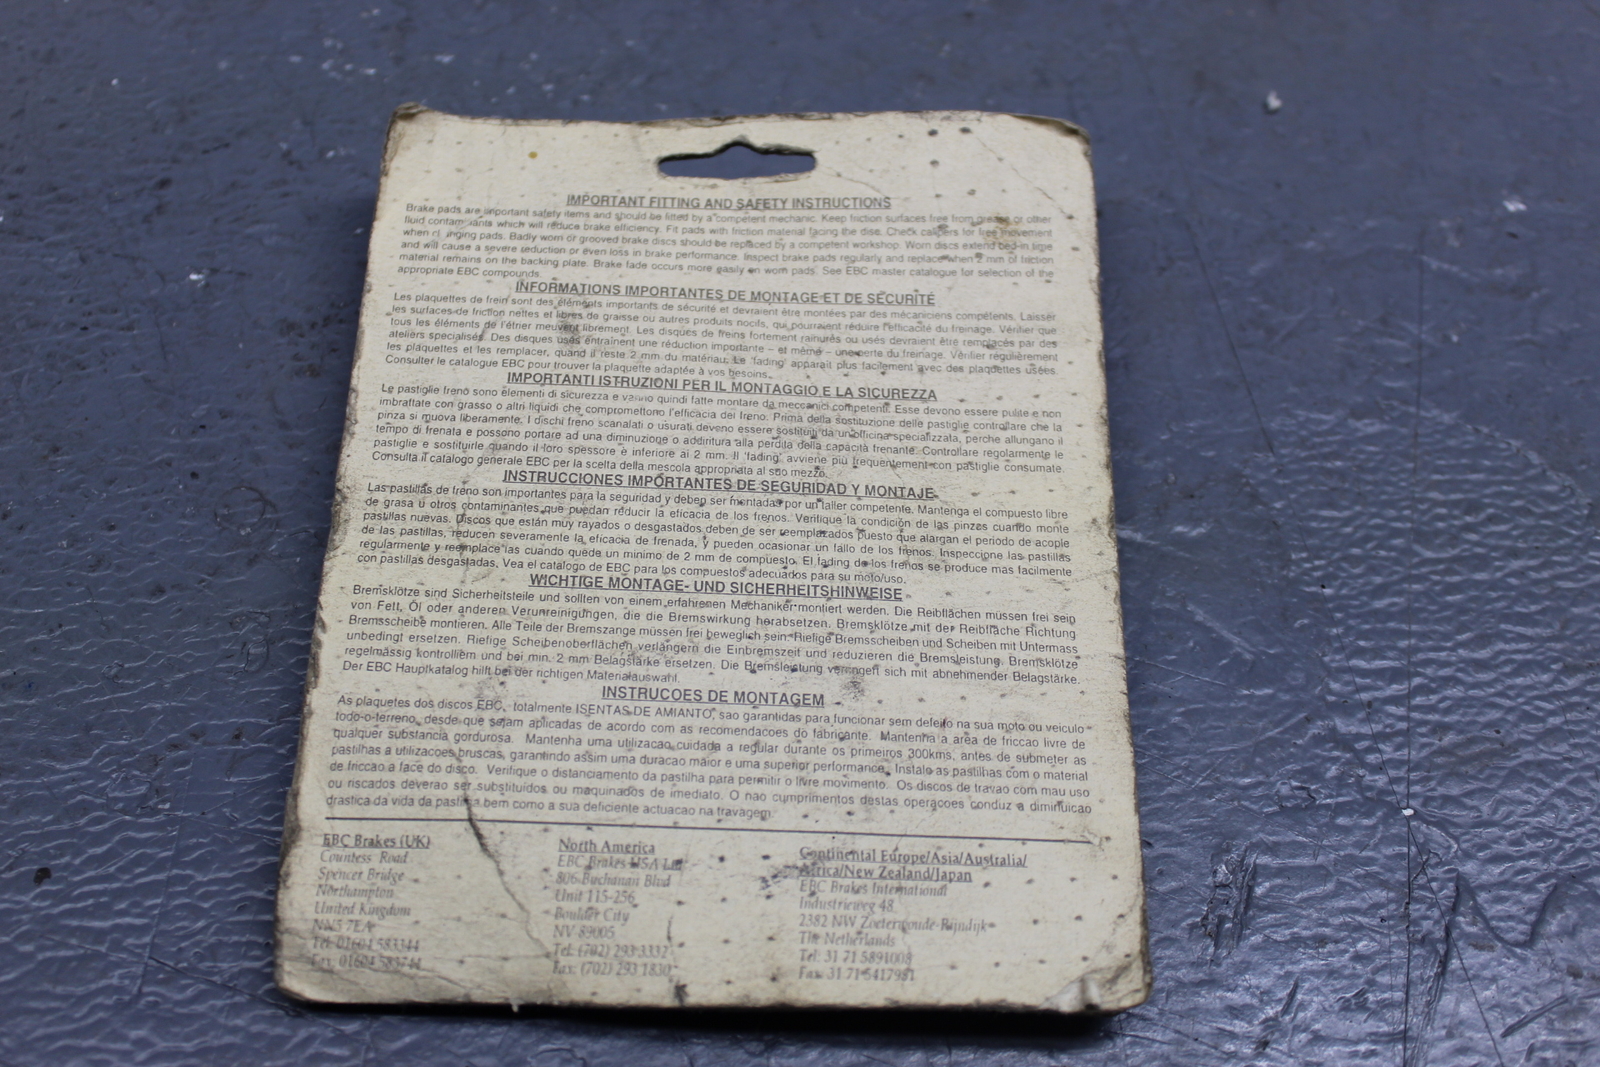 IMPORTANT FITTING AND SAFETY INSTRUCTIONS
Brake pads are important safety items and should be fitted by a competent mechanic. Keep friction surfaces free from grease or other
fluid contaminants which will reduce brake efficiency. Fit pads with friction material facing the disc. Check calipers for free movement
when changing pads. Badly worn or grooved brake discs should be replaced by a competent workshop. Worn discs extend bed-in time
and will cause a severe reduction or even loss in brake performance. Inspect brake pads regularly and replace when 2 mm of friction
material remains on the backing plate. Brake fade occurs more easily on worn pads. See EBC master catalogue for selection of the
appropriate EBC compounds.
INFORMATIONS IMPORTANTES DE MONTAGE ET DE SÉCURITÉ
Les plaquettes de frein sont des éléments importants de sécurité et devraient être montées par des mécaniciens compétents. Laisser
les surfaces de friction nettes et libres de graisse ou autres produits nocifs, qui pourraient réduire l'efficacité du freinage. Vérifier que
tous les éléments de l'étrier meuvent librement. Les disques de freins fortement rainurés ou usés devraient être remplacés par des
ateliers specialisés. Des disques usés entraînent une réduction importante – et même – une perte du freinage. Vérifier régulièrement
les plaquettes et les remplacer, quand il reste 2 mm du matériau. Le 'fading' apparait plus facilement avec des plaquettes usées.
Consulter le catalogue EBC pour trouver la plaquette adaptée à vos besoins.
IMPORTANTI ISTRUZIONI PER IL MONTAGGIO E LA SICUREZZA
Le pastiglie freno sono elementi di sicurezza e vanno quindi fatte montare da meccanici competenti. Esse devono essere pulite e non
imbrattate con grasso o altri liquidi che compromettono l'efficacia dei freno. Prima della sostituzione delle pastiglie controllare che la
pinza si muova liberamente. I dischi freno scanalati o usurati devono essere sostituiti da un'officina specializzata, perche allungano il
tempo di frenata e possono portare ad una diminuzione o addiritura alla perdita della capacità frenante. Controllare regolarmente le
pastiglie e sostituirle quando il loro spessore è inferiore ai 2 mm. Il 'fading' avviene più frequentemente con pastiglie consumate.
Consulta il catalogo generale EBC per la scelta della mescola appropriata al suo mezzo.
INSTRUCCIONES IMPORTANTES DE SEGURIDAD Y MONTAJE
Las pastillas de freno son importantes para la seguridad y deben ser montadas por un taller competente. Mantenga el compuesto libre
de grasa u otros contaminantes que puedan reducir la eficacia de los frenos. Verifique la condición de las pinzas cuando monte
pastillas nuevas. Discos que están muy rayados o desgastados deben de ser reemplazados puesto que alargan el periodo de acople
de las pastillas, reducen severamente la eficacia de frenada, y pueden ocasionar un fallo de los frenos. Inspeccione las pastillas
regularmente y reemplace las cuando quede un minimo de 2 mm de compuesto. El fading de los frenos se produce mas facilmente
con pastillas desgastadas. Vea el catalogo de EBC para los compuestos adecuados para su moto/uso.
WICHTIGE MONTAGE- UND SICHERHEITSHINWEISE
Bremsklötze sind Sicherheitsteile und sollten von einem erfahrenen Mechaniker montiert werden. Die Reibflächen müssen frei sein
von Fett, Öl oder anderen Verunreinigungen, die die Bremswirkung herabsetzen. Bremsklötze mit der Reibfläche Richtung
Bremsscheibe montieren. Alle Teile der Bremszange müssen frei beweglich sein. Riefige Bremsscheiben und Scheiben mit Untermass
unbedingt ersetzen. Riefige Scheibenoberflächen verlängern die Einbremszeit und reduzieren die Bremsleistung. Bremsklötze
regelmässig kontrolliern und bei min. 2 mm Belagstärke ersetzen. Die Bremsleistung verringert sich mit abnehmender Belagstärke.
Der EBC Hauptkatalog hilft bei der richtigen Materialauswahl.
INSTRUCOES DE MONTAGEM
As plaquetes dos discos EBC, totalmente ISENTAS DE AMIANTO, sao garantidas para funcionar sem defeito na sua moto ou veiculo
todo-o-terreno, desde que sejam aplicadas de acordo com as recomendacoes do fabricante. Mantenha a area de friccao livre de
qualquer substancia gordurosa. Mantenha uma utilizacao cuidada a regular durante os primeiros 300kms, antes de submeter as
pastilhas a utilizacoes bruscas, garantindo assim uma duracao maior e uma superior performance. Instalo as pastilhas com o material
de friccao a face do disco. Verifique o distanciamento da pastilha para permitir o livre movimento. Os discos de travao com mau uso
ou riscados deverao ser substituidos ou maquinados de imediato. O nao cumprimentos destas operacoes conduz a diminuicao
drastica da vida da pastilha bem como a sua deficiente actuacao na travagem.
EBC Brakes (UK)
Countess Road
Spencer Bridge
Northampton
United Kingdom
NN5 7EA
Tel: 01604 583344
Fax: 01604 583744
North America
EBC Brakes USA Ltd
806 Buchanan Blvd
Unit 115-256
Boulder City
NV 89005
Tel: (702) 293 3332
Fax: (702) 293 1830
Continental Europe/Asia/Australia/
Africa/New Zealand/Japan
EBC Brakes International
Industrieweg 48
2382 NW Zoeterwoude-Rijndijk
The Netherlands
Tel: 31 71 5891008
Fax: 31 71 5417981